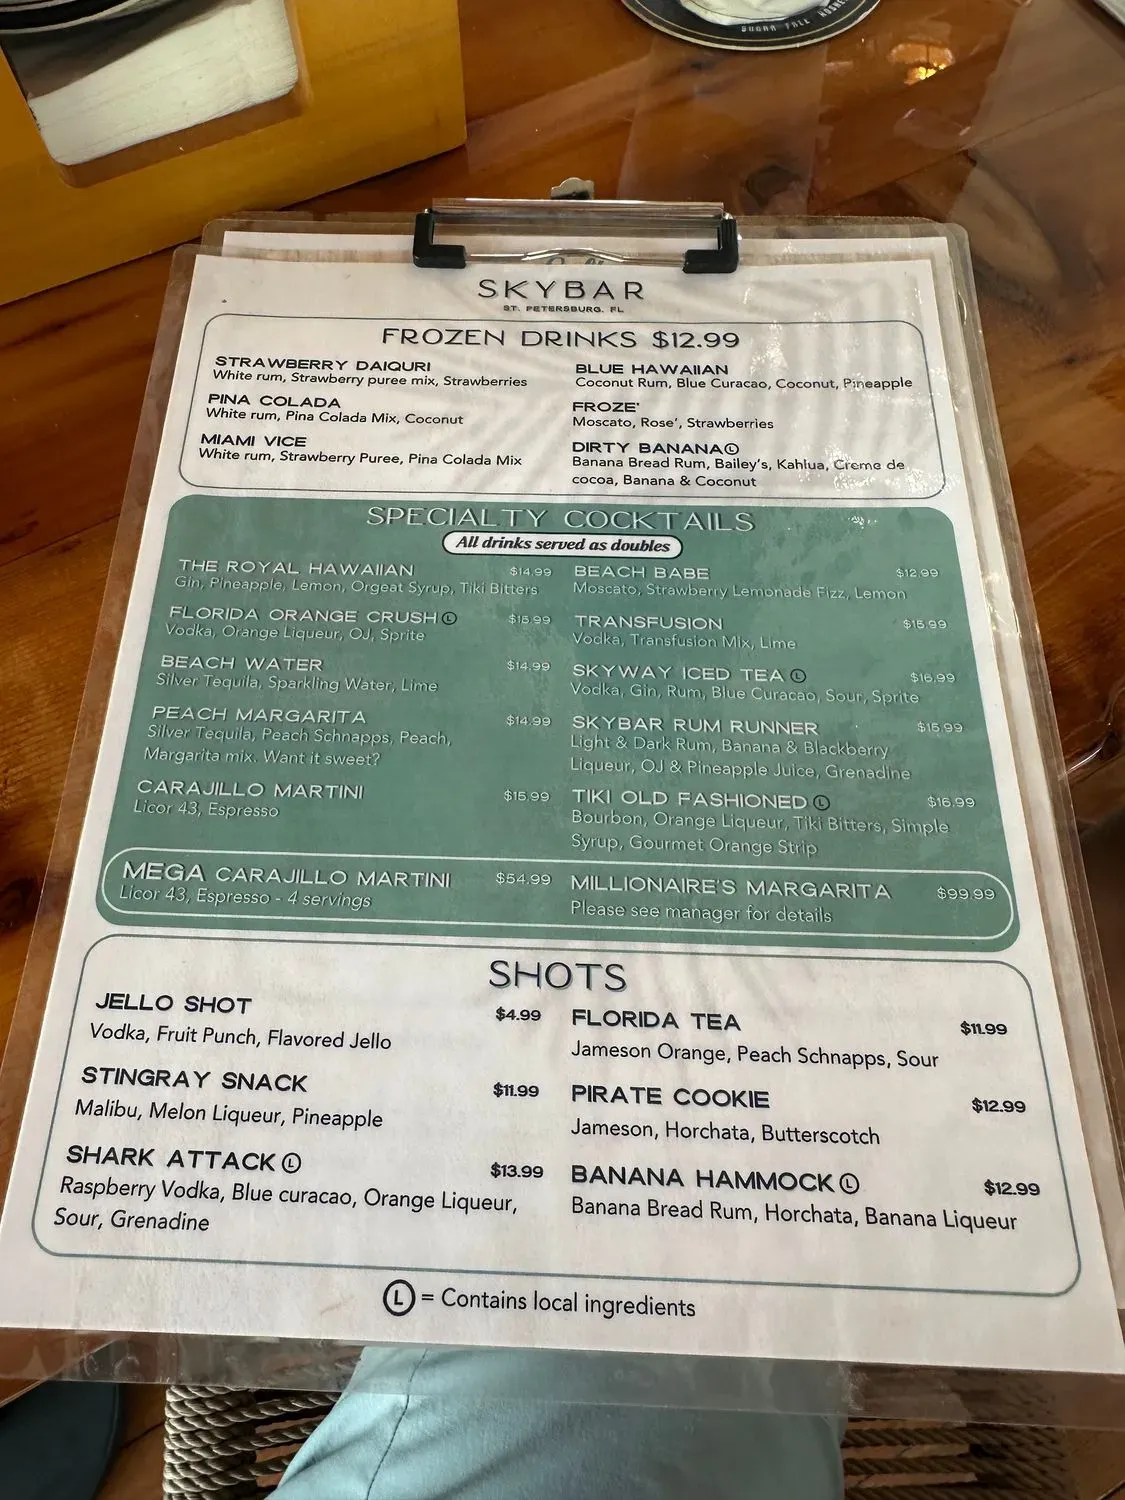 SUGAR FREE
SKYBAR
ST. PETERSBURG, FL
FROZEN DRINKS $12.99
STRAWBERRY DAIQURI
White rum, Strawberry puree mix, Strawberries
PINA COLADA
White rum, Pina Colada Mix, Coconut
MIAMI VICE
White rum, Strawberry Puree, Pina Colada Mix
BLUE HAWAIIAN
Coconut Rum, Blue Curacao, Coconut, Pineapple
FROZE'
Moscato, Rose', Strawberries
DIRTY BANANA Ⓛ
Banana Bread Rum, Bailey's, Kahlua, Creme de
cocoa, Banana & Coconut
SPECIALTY COCKTAILS
All drinks served as doubles
THE ROYAL HAWAIIAN $14.99
Gin, Pineapple, Lemon, Orgeat Syrup, Tiki Bitters
FLORIDA ORANGE CRUSH Ⓛ $15.99
Vodka, Orange Liqueur, OJ, Sprite
BEACH WATER $14.99
Silver Tequila, Sparkling Water, Lime
PEACH MARGARITA $14.99
Silver Tequila, Peach Schnapps, Peach,
Margarita mix. Want it sweet?
CARAJILLO MARTINI $15.99
Licor 43, Espresso
BEACH BABE $12.99
Moscato, Strawberry Lemonade Fizz, Lemon
TRANSFUSION $15.99
Vodka, Transfusion Mix, Lime
SKYWAY ICED TEA Ⓛ $16.99
Vodka, Gin, Rum, Blue Curacao, Sour, Sprite
SKYBAR RUM RUNNER $15.99
Light & Dark Rum, Banana & Blackberry
Liqueur, OJ & Pineapple Juice, Grenadine
TIKI OLD FASHIONED Ⓛ $16.99
Bourbon, Orange Liqueur, Tiki Bitters, Simple
Syrup, Gourmet Orange Strip
MEGA CARAJILLO MARTINI $54.99
Licor 43, Espresso - 4 servings
MILLIONAIRE'S MARGARITA $99.99
Please see manager for details
SHOTS
JELLO SHOT $4.99
Vodka, Fruit Punch, Flavored Jello
STINGRAY SNACK $11.99
Malibu, Melon Liqueur, Pineapple
SHARK ATTACK Ⓛ $13.99
Raspberry Vodka, Blue curacao, Orange Liqueur,
Sour, Grenadine
FLORIDA TEA $11.99
Jameson Orange, Peach Schnapps, Sour
PIRATE COOKIE $12.99
Jameson, Horchata, Butterscotch
BANANA HAMMOCK Ⓛ $12.99
Banana Bread Rum, Horchata, Banana Liqueur
Ⓛ = Contains local ingredients